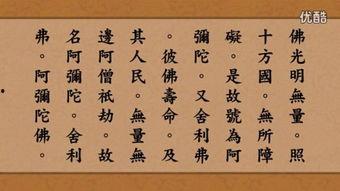 优酷
佛光明無量。照
十方國。無所障
礙。是故號為阿
彌陀。又舍利弗
。彼佛壽命。及
其人民。無量無
邊阿僧祇劫。故
名阿彌陀。舍利
弗。阿彌陀佛。